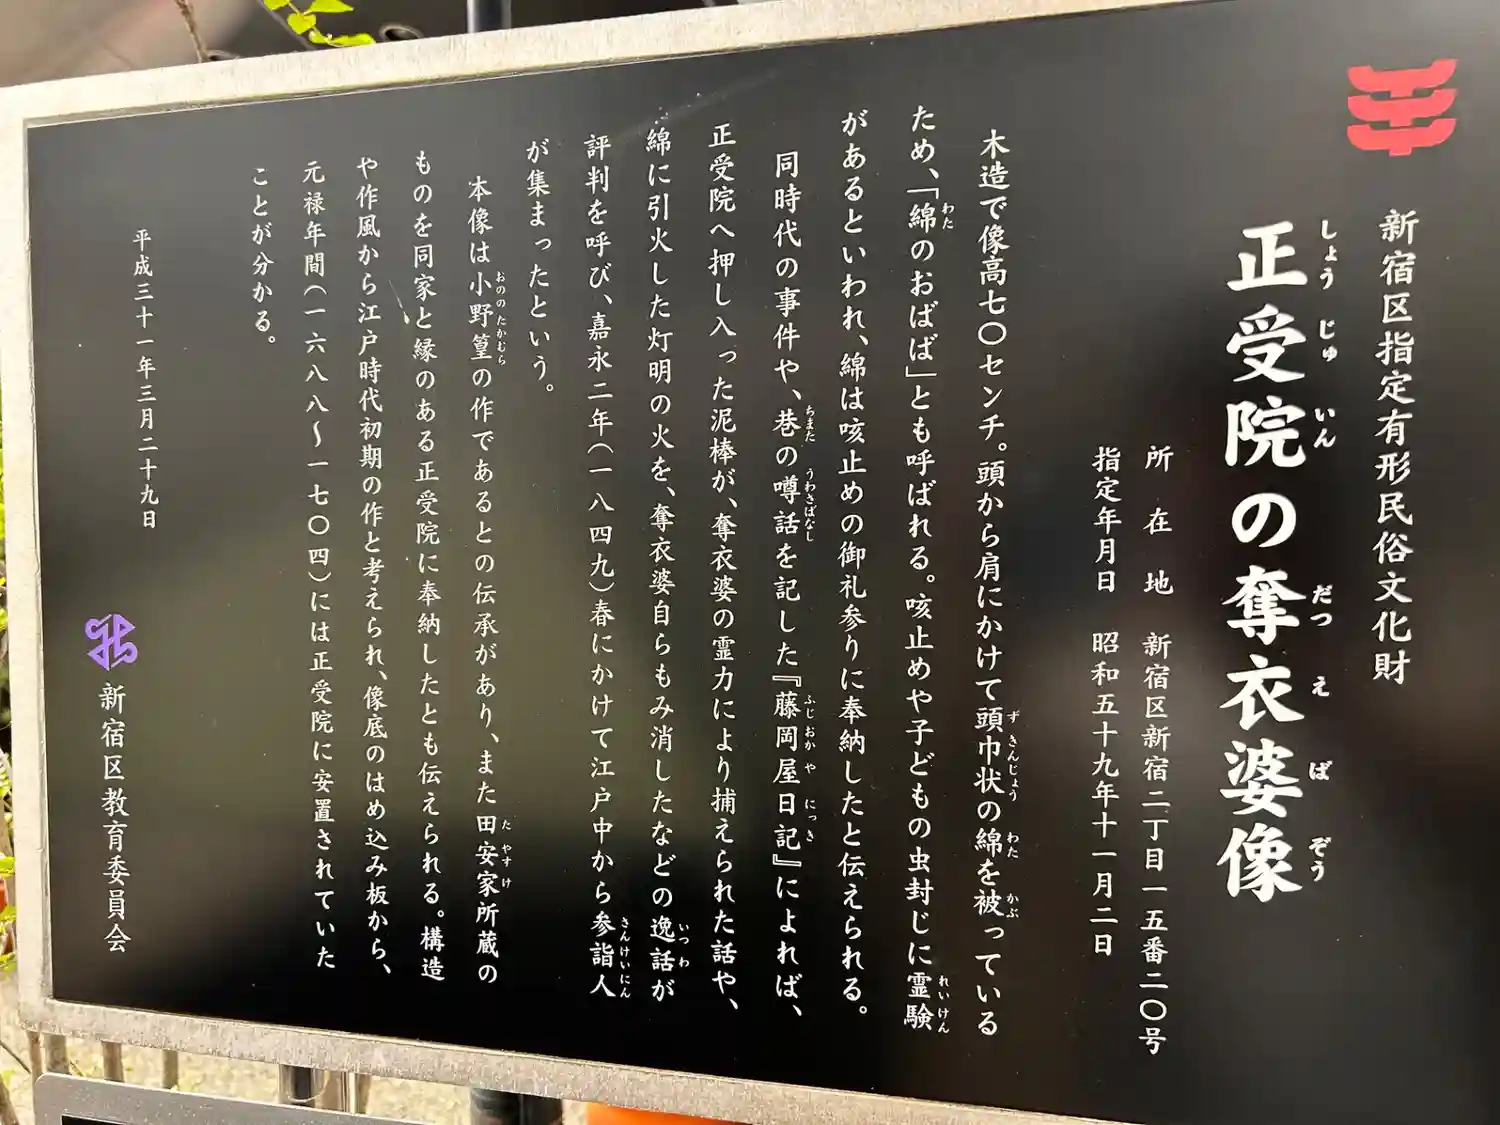 新宿区指定有形民俗文化財
正受院の奪衣婆像
しょうじゅいん だつえばぞう
所在地 新宿区新宿二丁目一五番二〇号
指定年月日 昭和五十九年十一月二日
木造で像高七〇センチ。頭から肩にかけて頭巾状の綿を被っている
ずきんじょう わた かぶ
ため、「綿のおばば」とも呼ばれる。咳止めや子どもの虫封じに霊験
わた れいけん
があるといわれ、綿は咳止めの御礼参りに奉納したと伝えられる。
同時代の事件や、巷の噂話を記した『藤岡屋日記』によれば、
ちまた うわさばなし ふじおかや にっき
正受院へ押し入った泥棒が、奪衣婆の霊力により捕えられた話や、
綿に引火した灯明の火を、奪衣婆自らもみ消したなどの逸話が
いつわ
評判を呼び、嘉永二年(一八四九)春にかけて江戸中から参詣人
さんけいにん
が集まったという。
本像は小野篁の作であるとの伝承があり、また田安家所蔵の
おののたかむら たやすけ
ものを同家と縁のある正受院に奉納したとも伝えられる。構造
や作風から江戸時代初期の作と考えられ、像底のはめ込み板から、
元禄年間(一六八八〜一七〇四)には正受院に安置されていた
ことが分かる。
平成三十一年三月二十九日
新宿区教育委員会